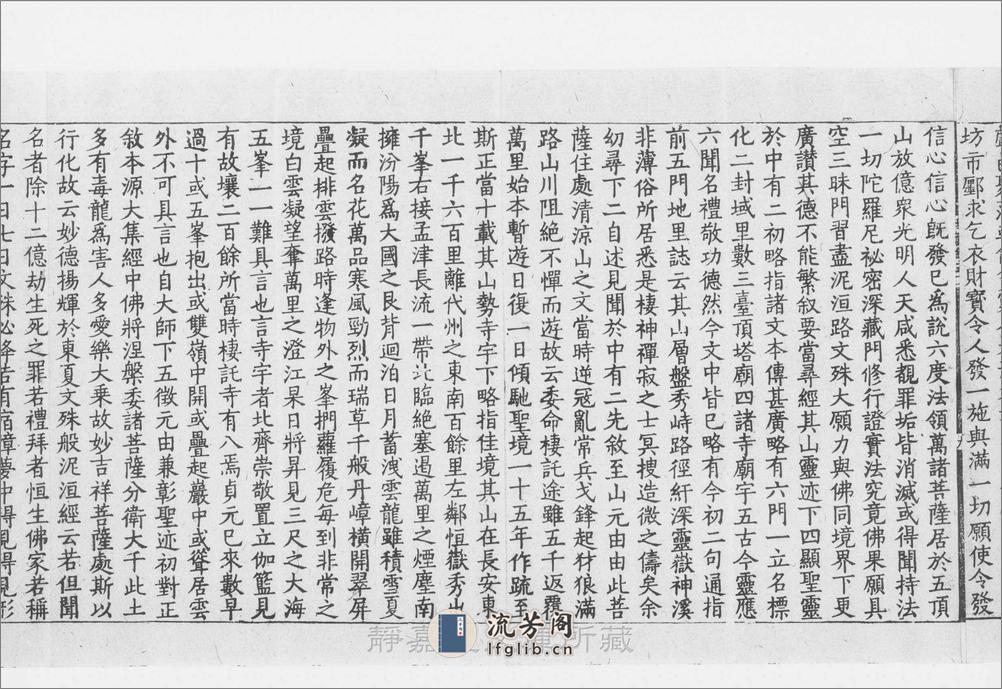 坊市鄽求乞衣財寳令人發一施與滿一切願使令發
信心信心旣發已為說六度法領萬諸菩薩居於五頂
山放億衆光明人天咸悉覩罪垢皆消滅或得聞持法
一切陀羅尼秘密深藏門修行證實法究竟佛果願具
空三昧門習盡泥洹路文殊大願力與佛同境界下更
廣讃其德不能繁叙要當尋經其山靈迹下四顯聖靈
於中有二初略指諸文本傳甚廣略有六門一立名標
化二封域里數三臺頂塔廟四諸寺廟宇五古今靈應
六聞名禮敬功德然今文中皆已略有今初二句通指
前五門地里誌云其山層盤秀峙路徑紆深靈嶽神溪
非薄俗所居悉是棲神禪寂之士冥搜造微之儔矣余
幼尋下二自述見聞於中有二先敘至山元由由此菩
薩住處清涼山之文當時逆冦亂常兵戈鋒起犲狼滿
路山川阻絶不憚而遊故云委命棲託途雖五千返覆
萬里始本暫遊日復一日傾馳聖境一十五年作疏至
斯正當十載其山勢寺宇下略指佳境其山在長安東
北一千六百里離代州之東南百餘里左鄰恒嶽秀出
千峯右接孟津長流一帶北臨絶塞遏萬里之煙塵南
擁汾陽爲大國之艮背迴泊日月蓄洩雲龍雖積雪夏
凝而名花萬品寒風勁烈而瑞草千般丹嶂横開翠屏
疊起排雲撥路時逢物外之峯捫蘿履危每到非常之
境白雲凝望奪萬里之澄江杲日將昇見三尺之大海
五峯一一難具言也言寺宇者北齊崇敬置立伽籃見
有故壤二百餘所當時棲託寺有八焉貞元已來數早
過十或五峯抱出或雙嶺中開或疊起巖中或聳居雲
外不可具言也自大師下五徴元由兼彰聖迹初對正
敘本源大集經中佛將涅槃委諸菩薩分衛大千此土
多有毒龍爲害人多愛樂大乗故妙吉祥菩薩處斯以
行化故云妙德揚輝於東夏文殊般泥洹經云若但聞
名者除十二億劫生死之罪若禮拜者恒生佛家若稱
名字一日七日文殊必降若有宿障夢中得見得見形
靜嘉 所藏
流芳阁
lfglib.cn